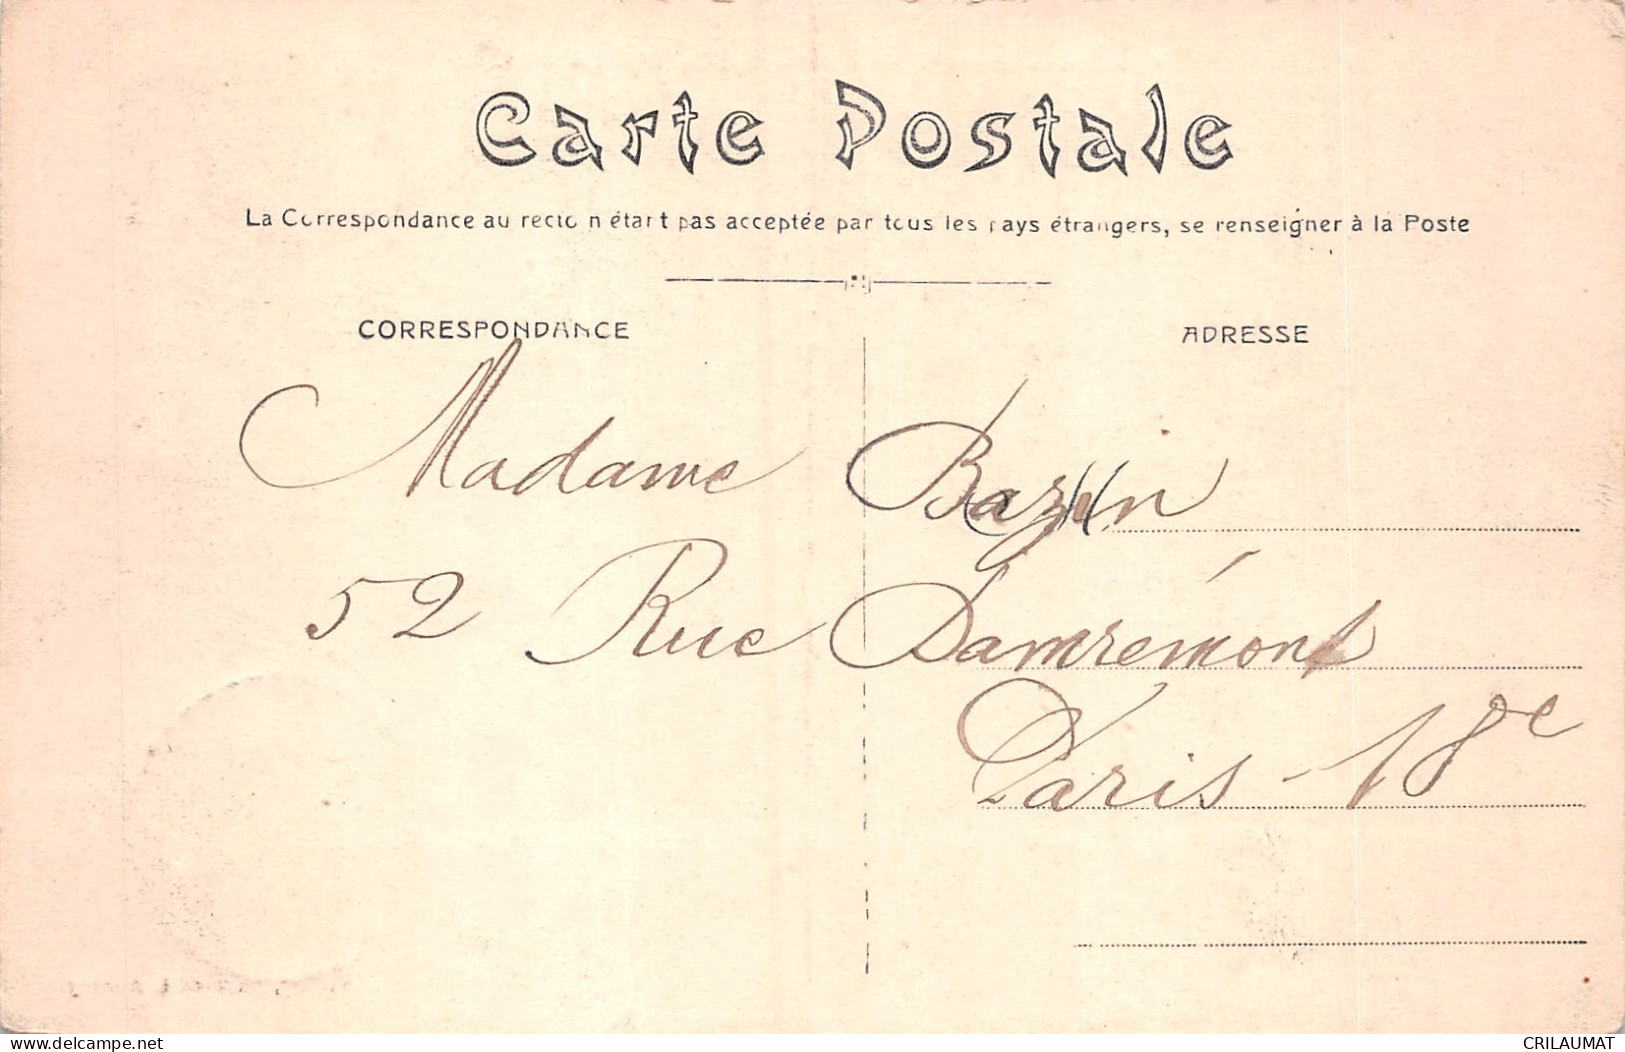 Carte Postale
La Correspondance au recto n'étant pas acceptée par tous les pays étrangers, se renseigner à la Poste
CORRESPONDANCE
ADRESSE
Madame Bazin
52 Rue Damrémont
Paris - 18e
www.delcampe.net
CRILAUMAT